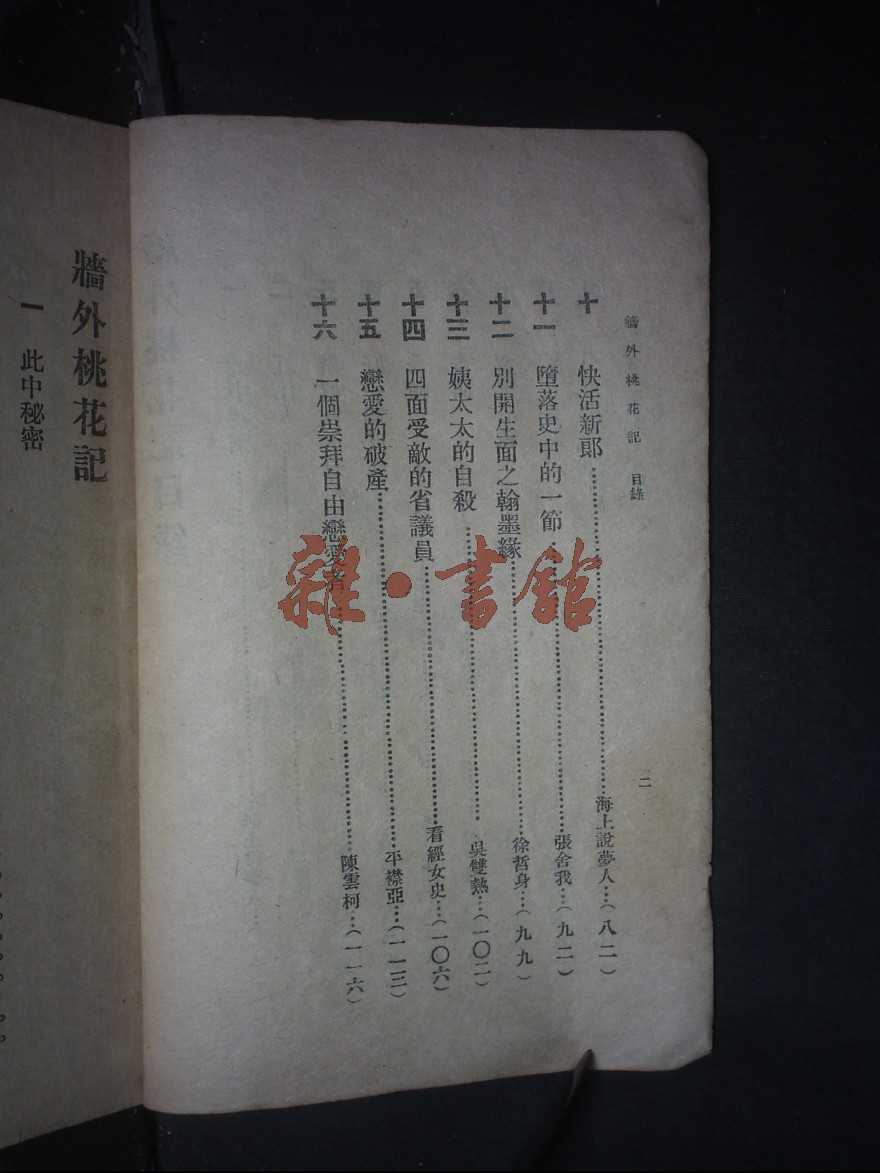 牆外桃花記　目錄
二
十　快活新郎……海上說夢人…（八二）
十一　墮落史中的一節……張舍我…（九二）
十二　別開生面之翰墨緣……徐哲身…（九九）
十三　姨太太的自殺……吳雙熱…（一〇二）
十四　四面受敵的省議員……看經女史…（一〇六）
十五　戀愛的破產……平襟亞…（一一三）
十六　一個崇拜自由戀愛者……陳雲柯…（一一六）
牆外桃花記
一　此中秘密
雜·書館